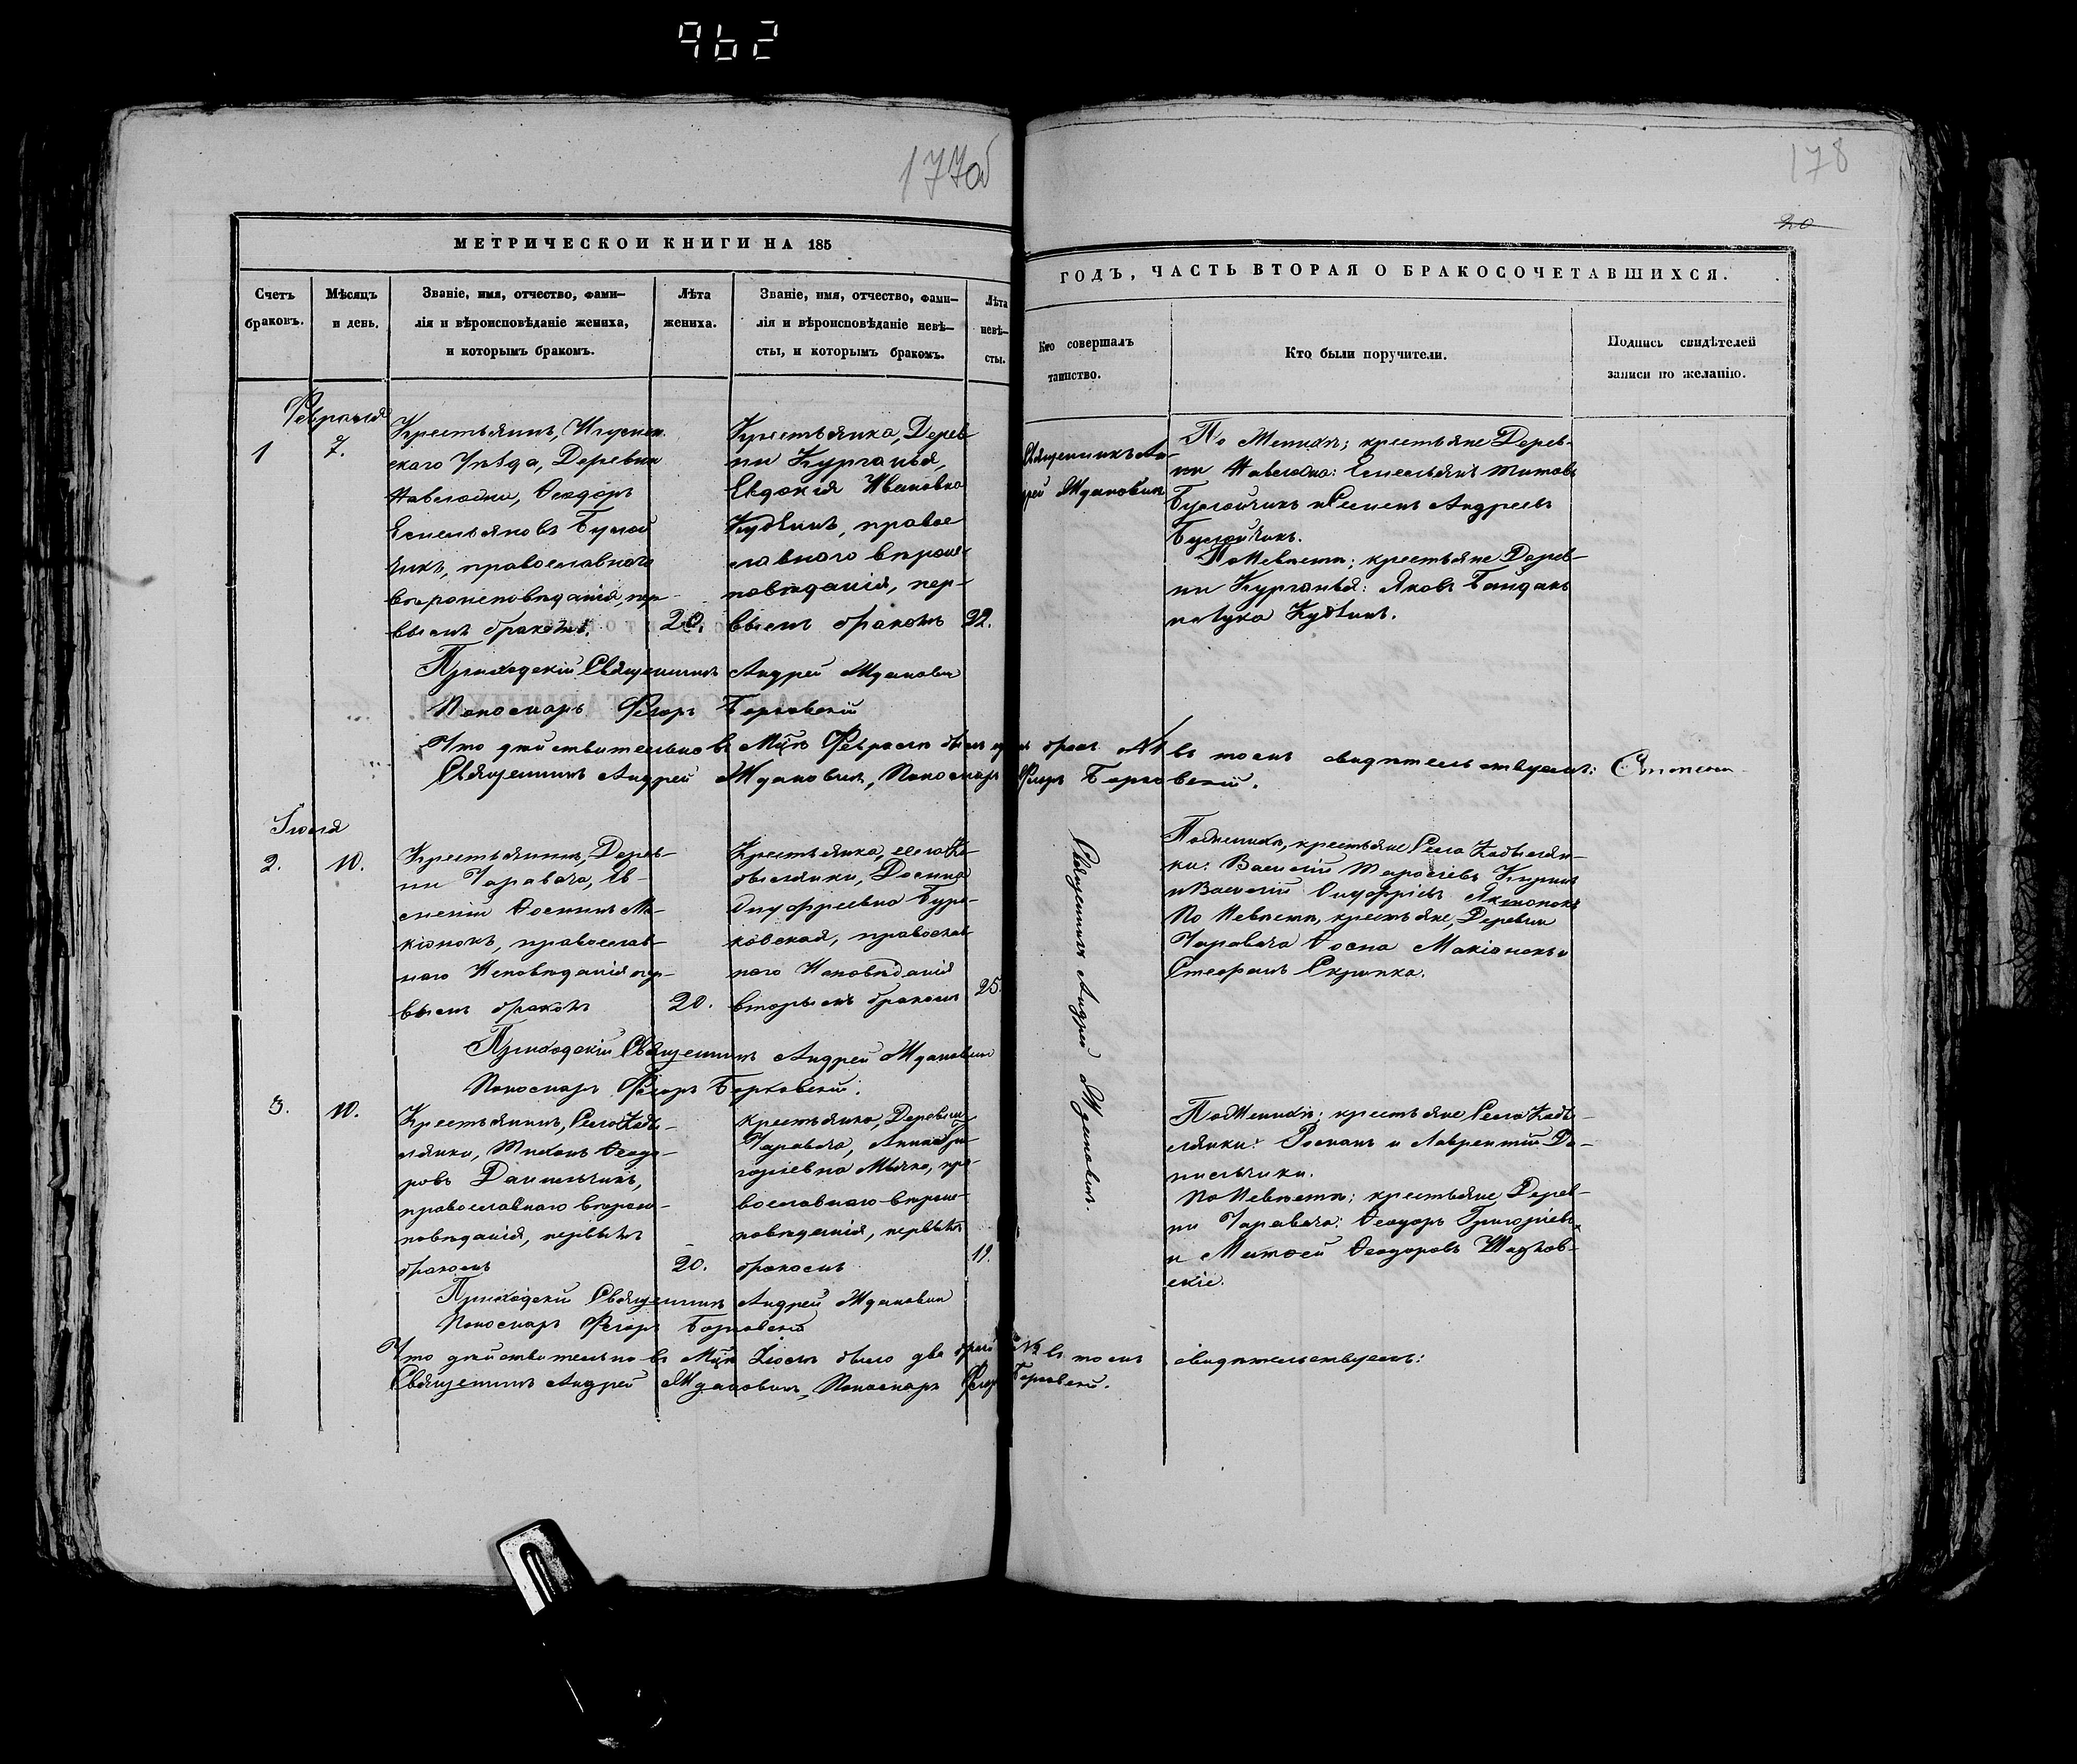 962
177об
178
20
МЕТРИЧЕСКОИ КНИГИ НА 185
ГОДЪ, ЧАСТЬ ВТОРАЯ О БРАКОСОЧЕТАВШИХСЯ.
Счетъ
браковъ.
Мѣсяцъ
и день.
Званіе, имя, отчество, фами–
лія и вѣроисповѣданіе жениха,
и которымъ бракомъ.
Лѣта
жениха.
Званіе, имя, отчество, фами–
лія и вѣроисповѣданіе невѣ–
сты, и которымъ бракомъ.
Лѣта
невѣ–
сты.
Кто совершалъ
таинство.
Кто были поручители.
Подпись свидѣтелей
записи по желанію.
Февраля
1
7.
Крестьянинъ, Игумен.
скаго Уѣзда, Деревни
Ѳеодоръ
Емельяновъ Буслой
чикъ, православнаго
вѣроисповѣданія, пер-
вымъ бракомъ.
20.
Крестьянка, Дерев
ни Курганья,
Евдокія Иванова
правос
лавнаго вѣроис-
повѣданія, пер-
вымъ бракомъ
22.
Священникъ Ан-
дрей Ждановичъ
По Женихѣ; крестьяне Дерев-
ни Емельянъ Титовъ
Буслойчикъ и Семенъ Андреевъ
Буслойчикъ.
По Невѣстѣ; крестьяне Дерев-
ни Курганья: Яковъ Байдакъ
и Лука
Приходскій Священникъ Андрей Ждановичъ
Пономарь Ѳеодоръ Борковскій
Что дѣйствительно въ Мцѣ Февралѣ былъ одинъ бракъ №1 въ томъ свидѣтельствуемъ:
Священникъ Андрей Ждановичъ, Пономарь Борковскій.
Іюля
2.
10.
Крестьянинъ, Дерев-
ни Чаравача, Ев-
Осиповъ Ма-
кіонокъ, православ-
наго Исповѣданія пер-
вымъ бракомъ
20.
Крестьянка, села Ка-
Домна
Онуфріевна Бура-
ковская, православ
наго Исповѣданія
вторымъ бракомъ
25.
Священникъ Андрей Ждановичъ.
По Женихѣ, крестьяне Села
Василій Тарасіевъ
и Василій Онуфріевъ
По Невѣстѣ, крестьяне, Деревни
Чаравача Макіонокъ и
Стефанъ Скрипка.
Приходскій Священникъ Андрей Ждановичъ
Пономарь Борковскій.
3.
10.
Крестьянинъ, Села
Тихонъ Ѳеодо-
ровъ Данильчикъ,
православнаго вѣроис-
повѣданія, первымъ
бракомъ
20.
крестьянка, Деревни
Чаравача, Анна Гри-
горіевна пра-
вославнаго вѣроис-
повѣданія, первымъ
бракомъ
19.
По Женихѣ; крестьяне Села
Романъ и Лаврентій Да-
нильчики.
По Невѣстѣ; крестьяне Дерев-
ни Чаравача: Ѳеодоръ Григоріевъ
и Матвей Ѳеодоровъ
скіе.
Приходскій Священникъ Андрей Ждановичъ
Пономарь Борковскій
Что дѣйствительно въ Мцѣ Іюлѣ было два брака въ томъ свидѣтельствуемъ:
Священникъ Андрей Ждановичъ, Пономарь Борковскій.